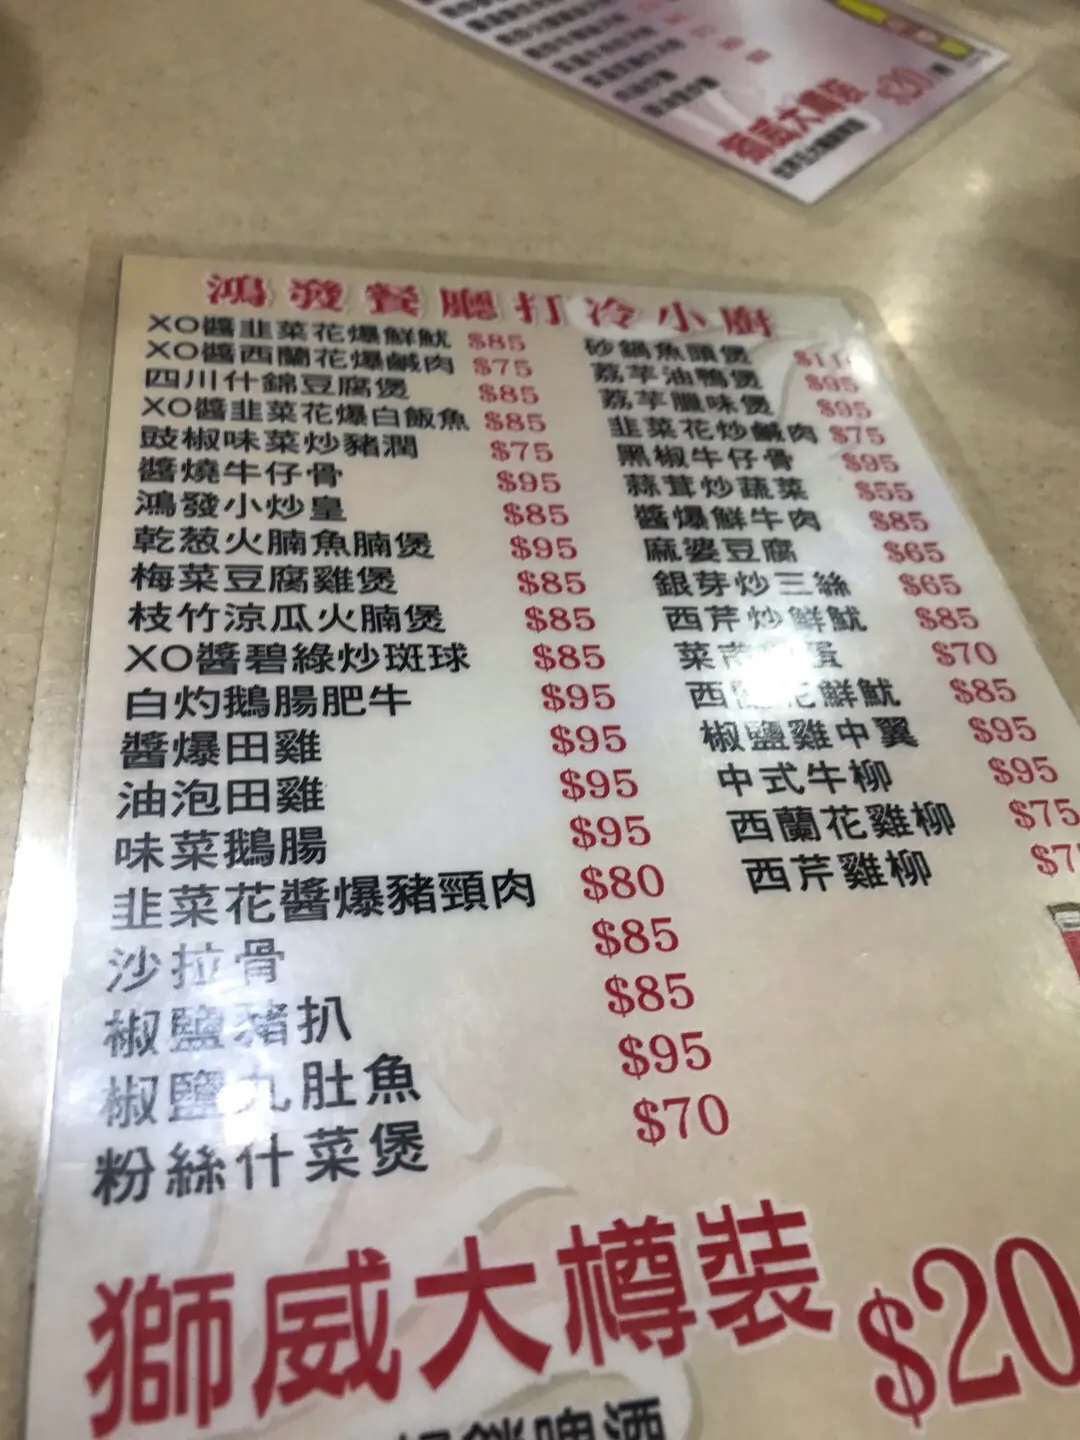 鴻發餐廳打冷小廚
XO醬韭菜花爆鮮魷 $85
XO醬西蘭花爆鹹肉 $75
四川什錦豆腐煲 $85
XO醬韭菜花爆白飯魚 $85
豉椒味菜炒豬潤 $75
醬燒牛仔骨 $95
鴻發小炒皇 $85
乾葱火腩魚腩煲 $95
梅菜豆腐雞煲 $85
枝竹涼瓜火腩煲 $85
XO醬碧綠炒斑球 $85
白灼鵝腸肥牛 $95
醬爆田雞 $95
油泡田雞 $95
味菜鵝腸 $95
韭菜花醬爆豬頸肉 $80
沙拉骨 $85
椒鹽豬扒 $85
椒鹽九肚魚 $95
粉絲什菜煲 $70
砂鍋魚頭煲
荔芋油鴨煲 $95
荔芋臘味煲 $95
韭菜花炒鹹肉 $75
黑椒牛仔骨 $95
蒜茸炒蔬菜 $55
醬爆鮮牛肉 $85
麻婆豆腐 $65
銀芽炒三絲 $65
西芹炒鮮魷 $85
菜 蛋 $70
西蘭花鮮魷 $85
椒鹽雞中翼 $95
中式牛柳 $95
西蘭花雞柳 $75
西芹雞柳
獅威大樽裝 $20
啤酒
獅威大樽裝 $20